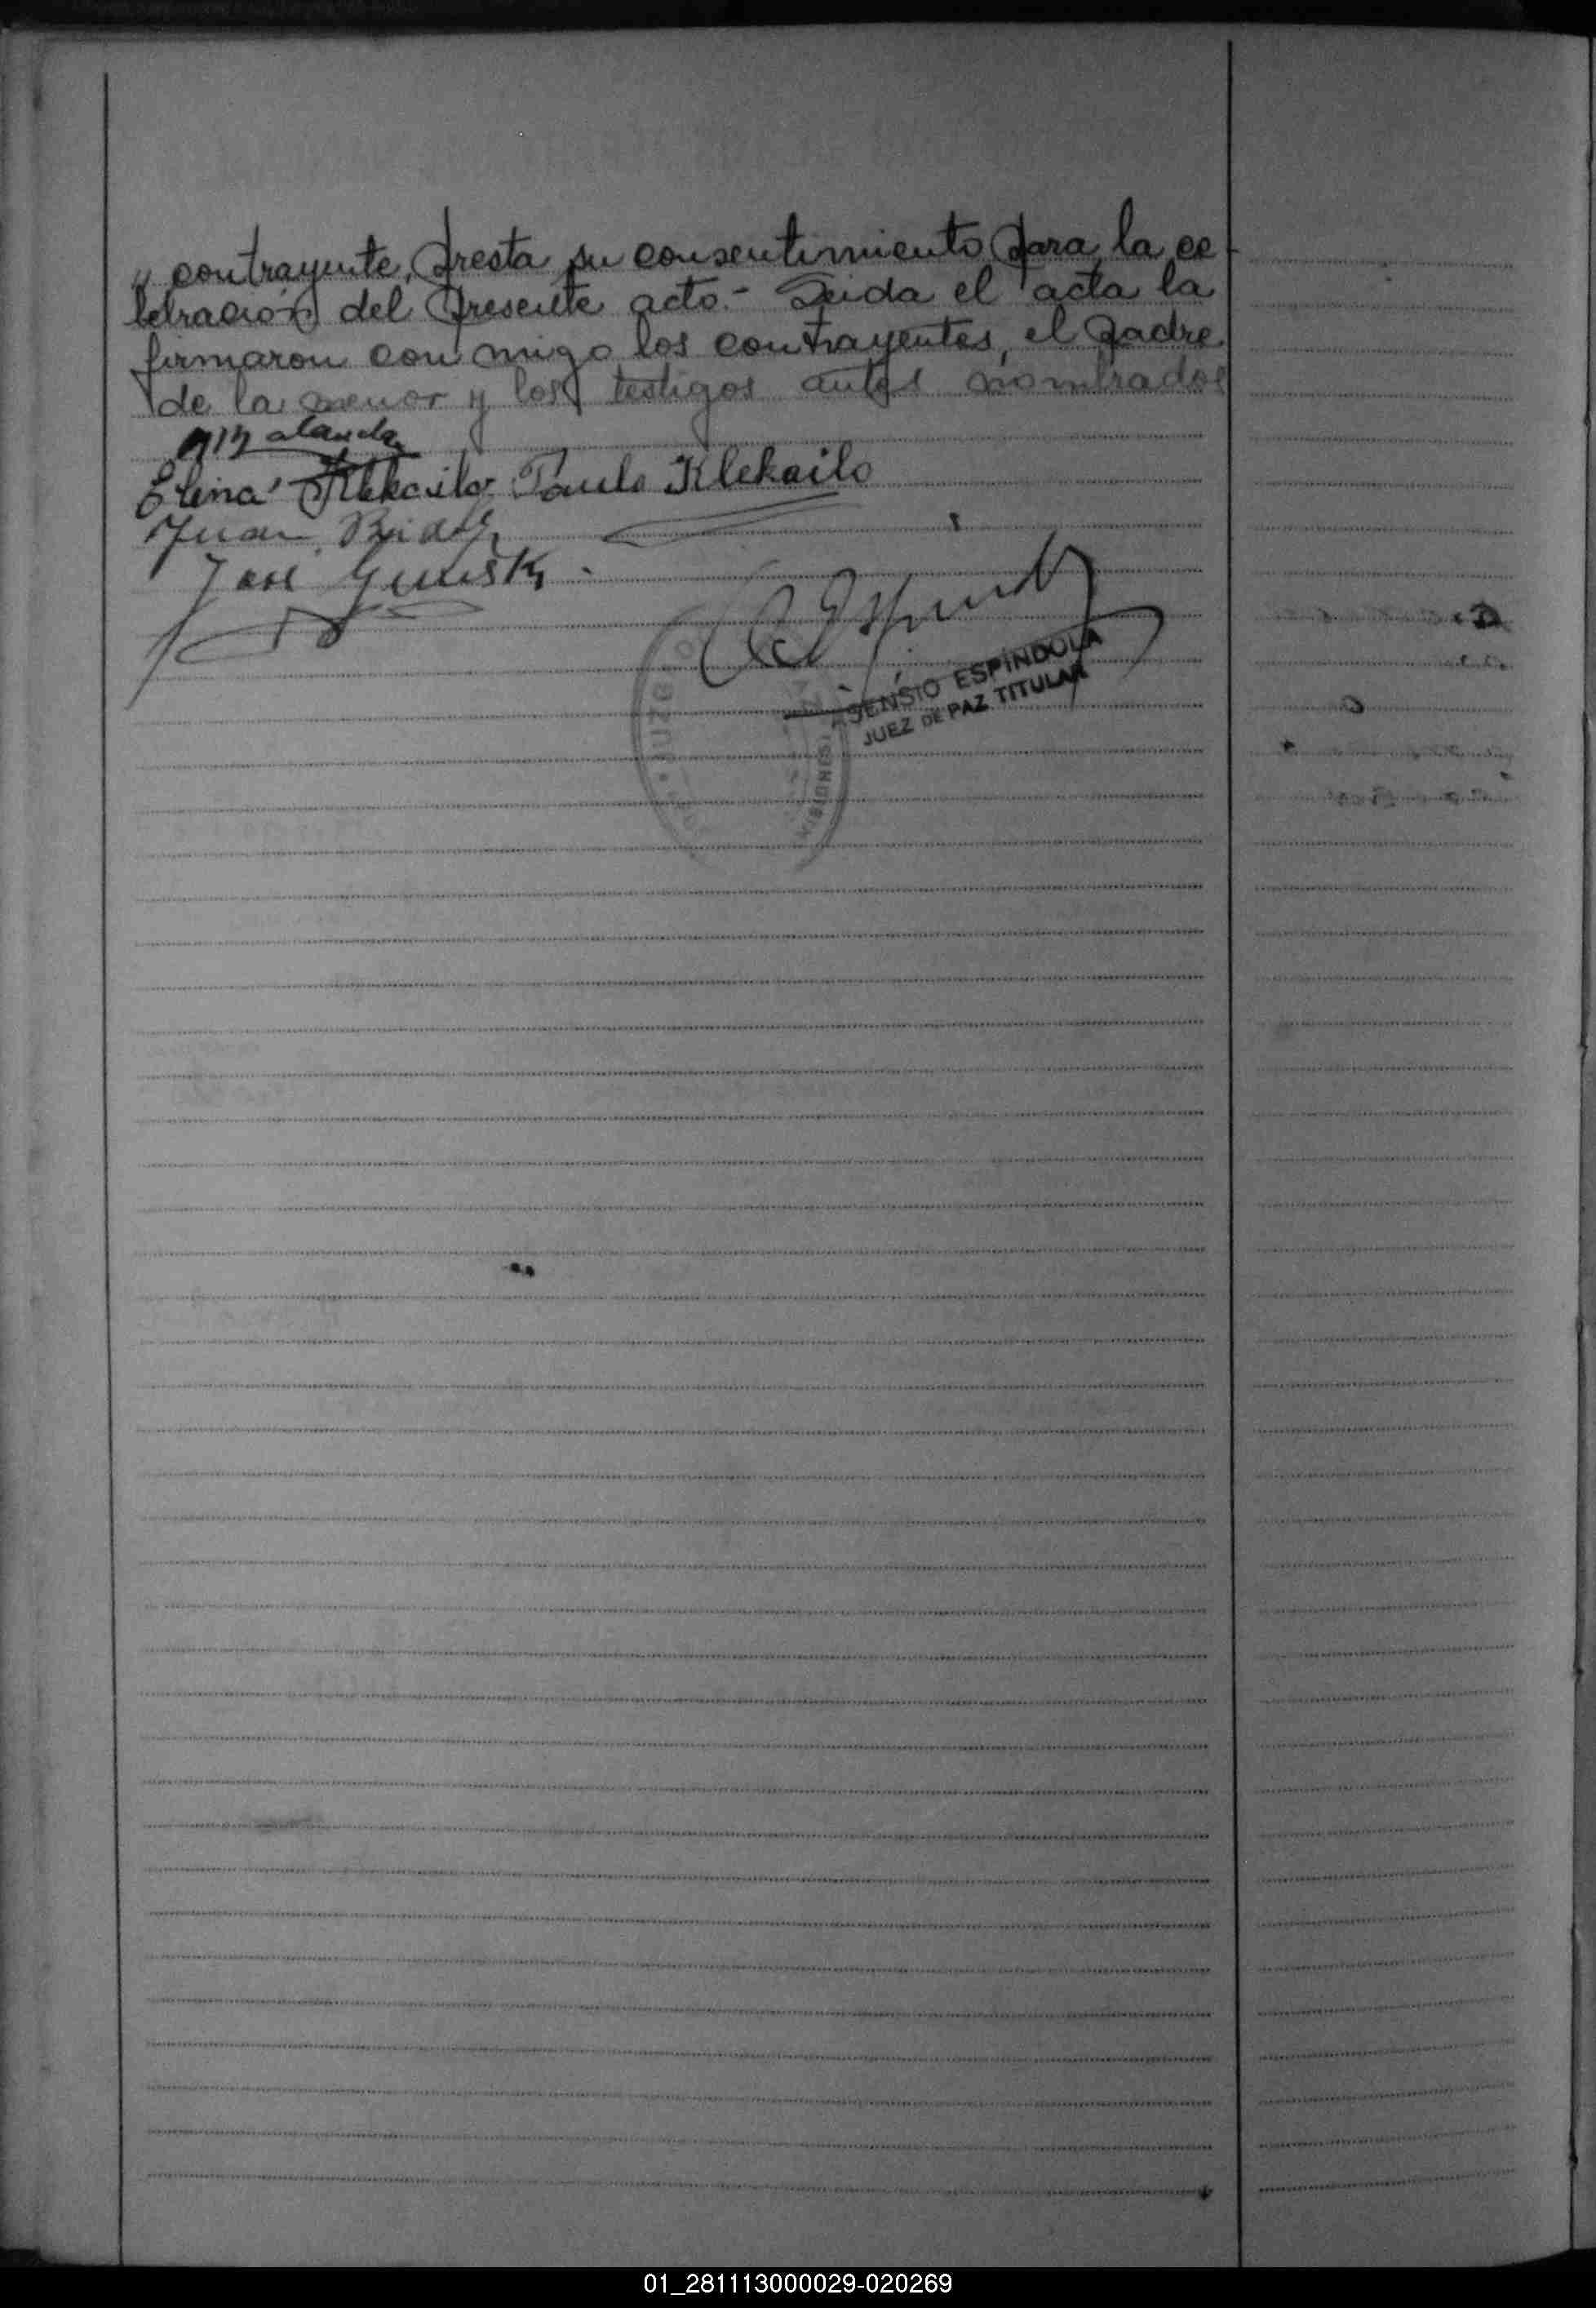 y contrayente, presta su consentimiento para la ce-
lebración del presente acto.- Leida el acta la
firmaron con migo los contrayentes, el padre
de la menor y los testigos antes nombrados
Elena Klekailo Paulo Klekailo
Juan
José
ASENSIO ESPÍNDOLA
JUEZ DE PAZ TITULAR
JUZG
MISIONES
01_281113000029-020269